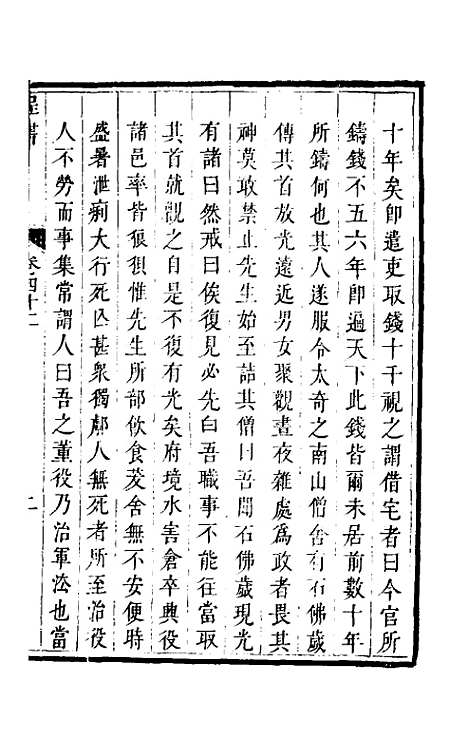 十年矣即遣吏取錢十千視之謂借宅者曰今官所
鑄錢不五六年即遍天下此錢皆爾未居前數十年
所鑄何也其人遂服令太奇之南山僧舍有石佛歲
傳其首放光遠近男女聚觀晝夜雜處爲政者畏其
神莫敢禁止先生始至詰其僧曰吾聞石佛歲現光
有諸曰然戒曰俟復見必先白吾職事不能往當取
其首就觀之自是不復有光矣府境水害倉卒興役
諸邑率皆狼狽惟先生所部飲食茇舍無不安便時
盛暑泄痢大行死亾甚衆獨鄠人無死者所至治役
人不勞而事集常謂人曰吾之董役乃治軍法也當
卷四十二
二